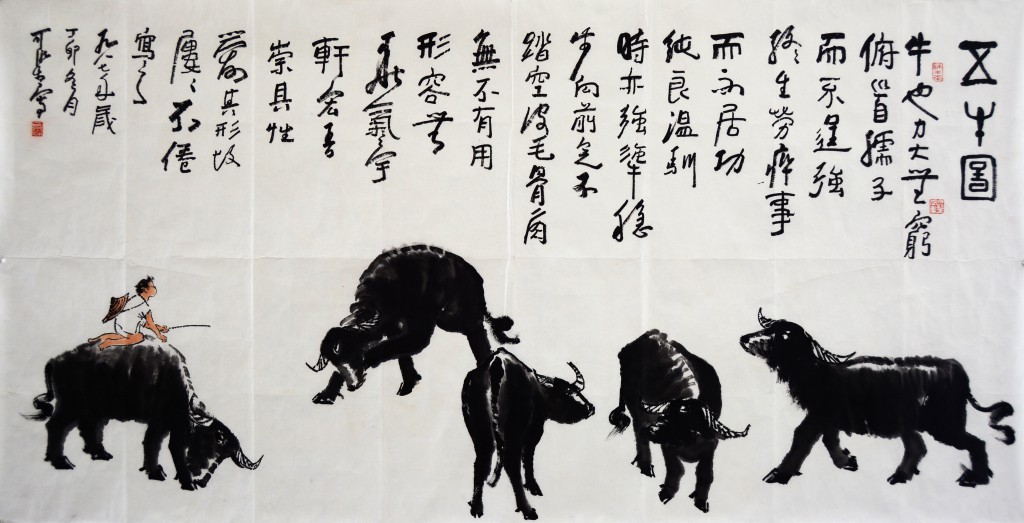 五牛圖
牛也力大無窮
俯首孺子
而不逞強
終生勞瘁事
而不居功
純良溫馴
時亦強犟穩
步向前足不
踏空皮毛骨角
無不有用
形容無
華氣宇
軒宏吾
崇其性
愛其形故
屢々不倦
寫之
一九八七年歲
丁卯冬月
可染